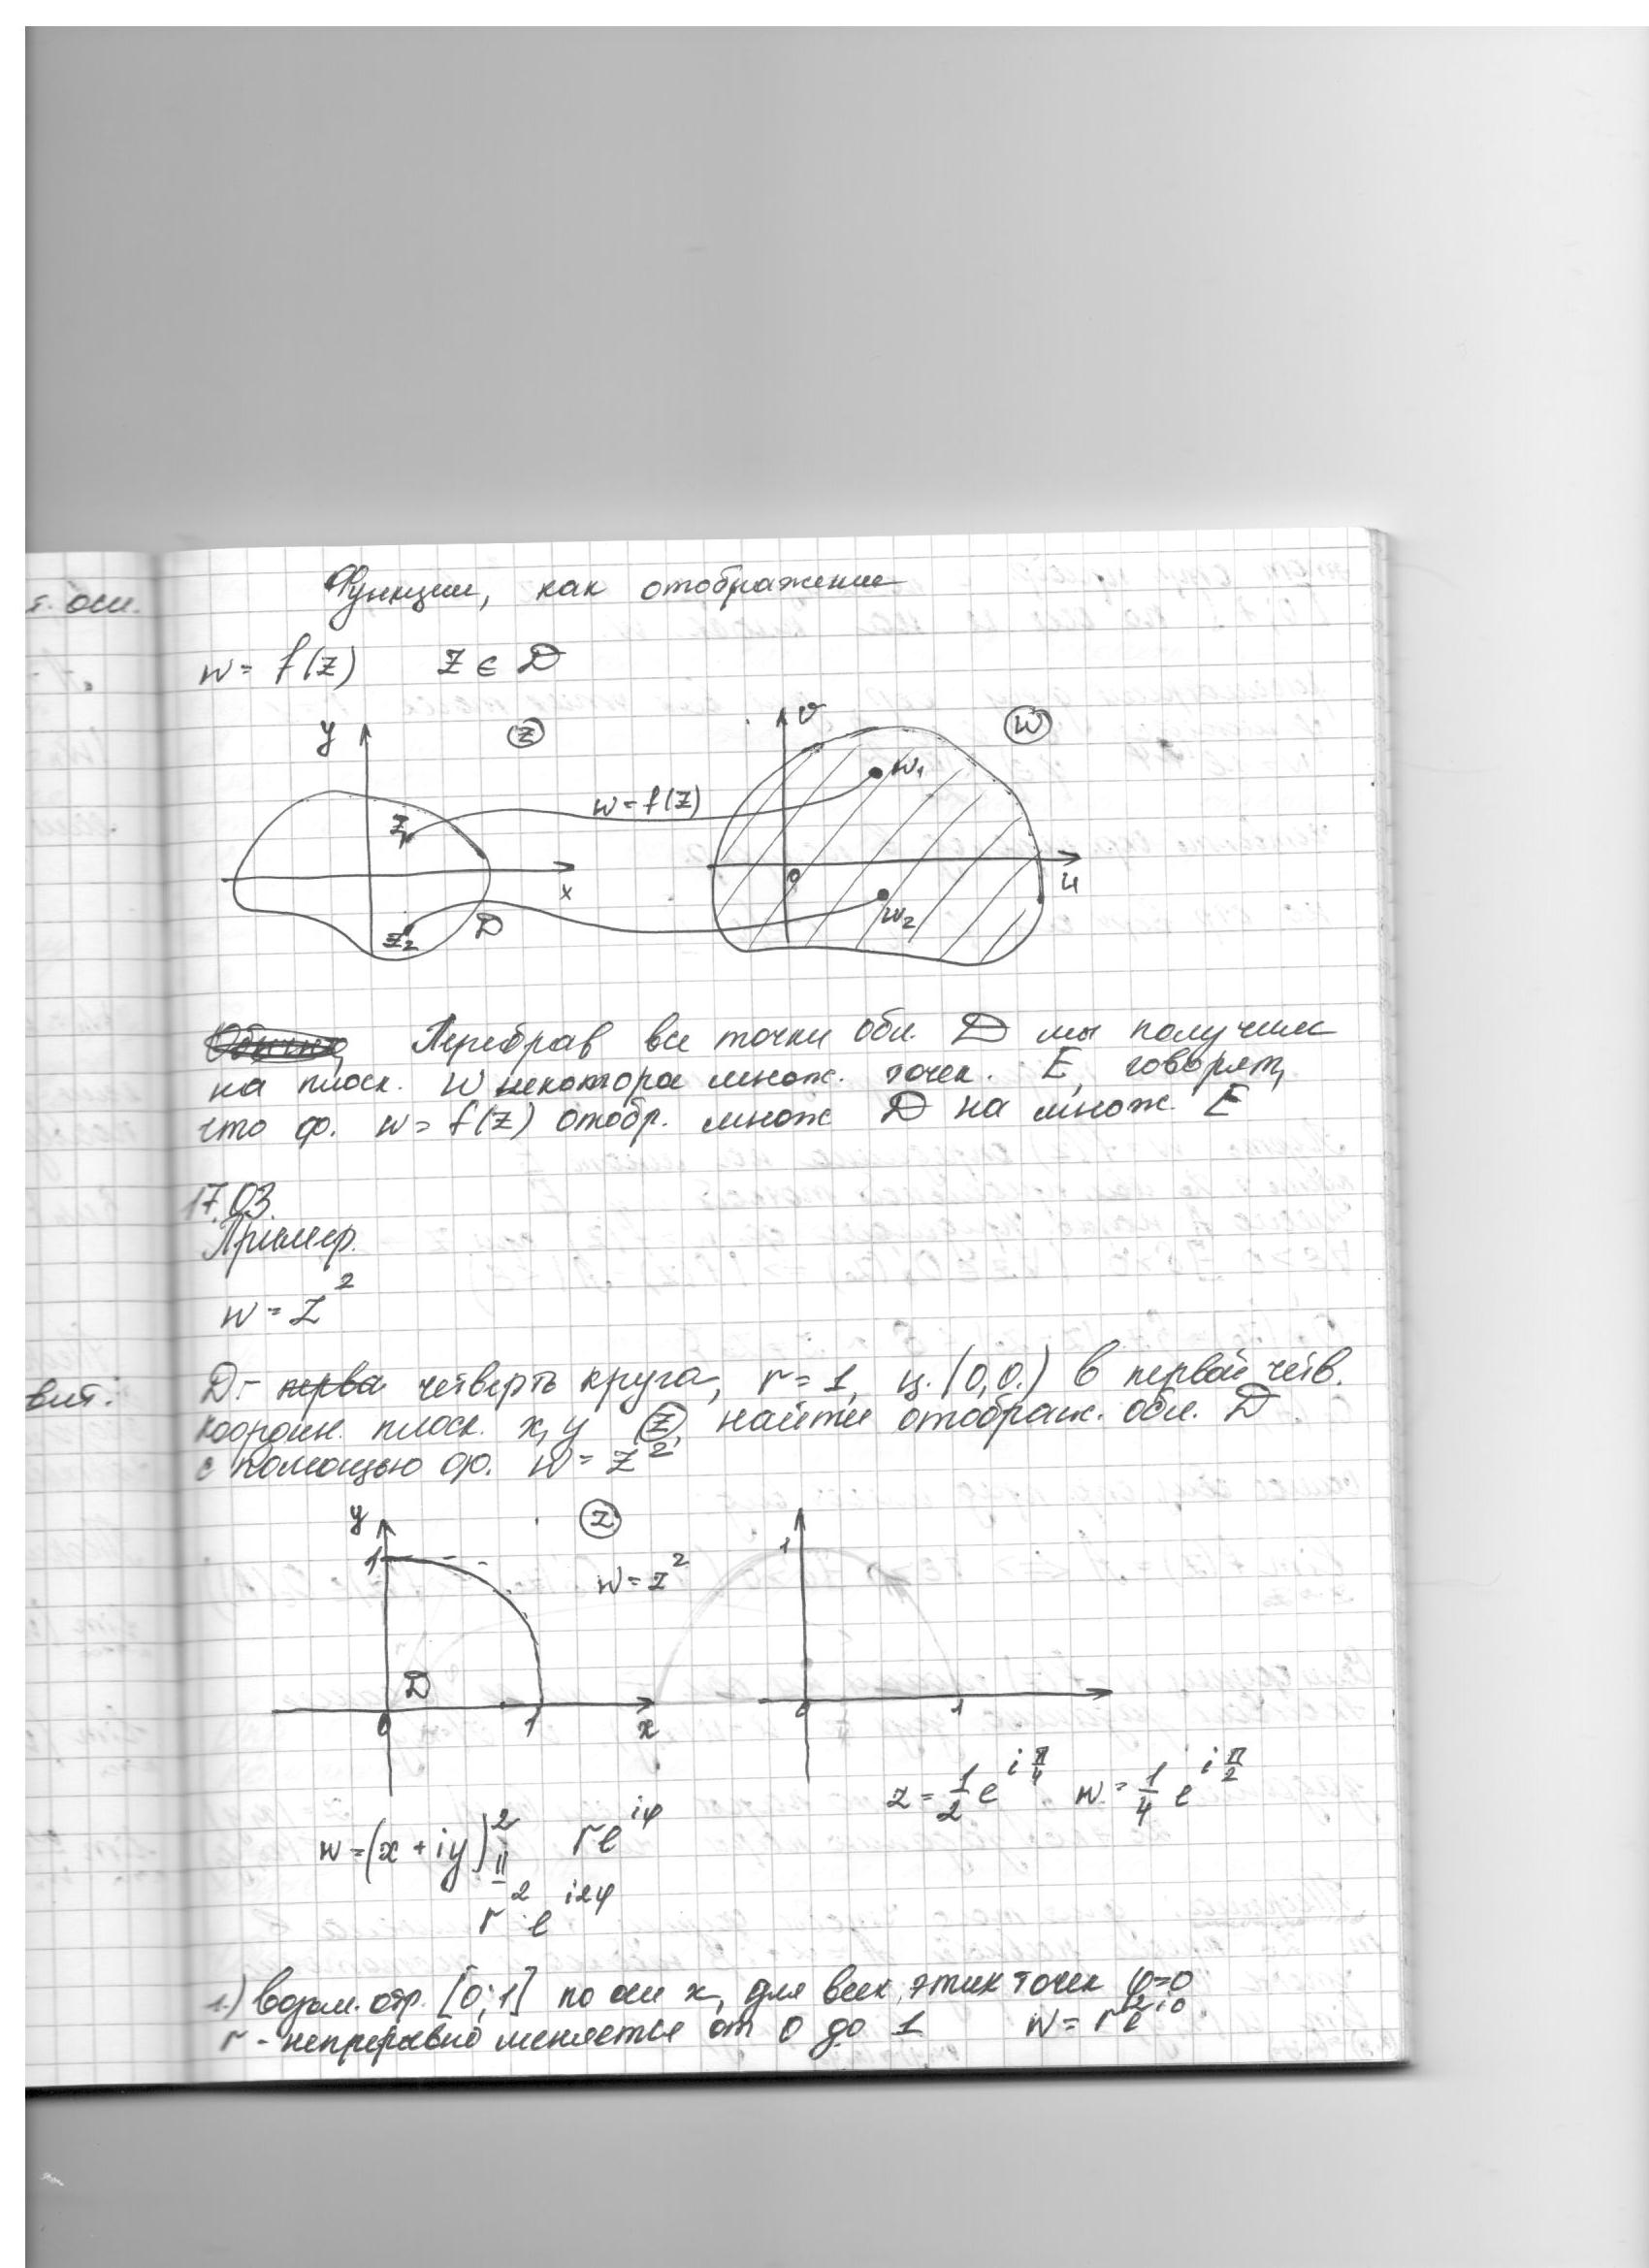 Функции, как отображение
w = f(z) z ∈ D
y z v w
w = f(z) w₁
z₁
x 0 u
z₂ D w₂
Перебрав все точки обл. D мы получим
на плоск. w некотора множ. точек. E, говорят,
что ф. w = f(z) отобр. множ D на множ. E
17.03.
Пример.
w = z²
D - перва четверть круга, r = 1, ц. (0,0.) в первой четв.
коорdin. плоск. x, y z, найти отображ. обл. D
с помощью ф. w = z²
y z
1 w = z² 1
D
0 1 x 0 1
z = 1/2 e^{iπ/4} w = 1/4 e^{iπ/2}
w = (x + iy)² re^{iφ}
=
r² e^{i2φ}
1.) возьм. отр. [0; 1] по оси x, для всех этих точек φ=0
r - непрерывно меняется от 0 до 1 w = r² e^{i0}
т. оси.
вит: